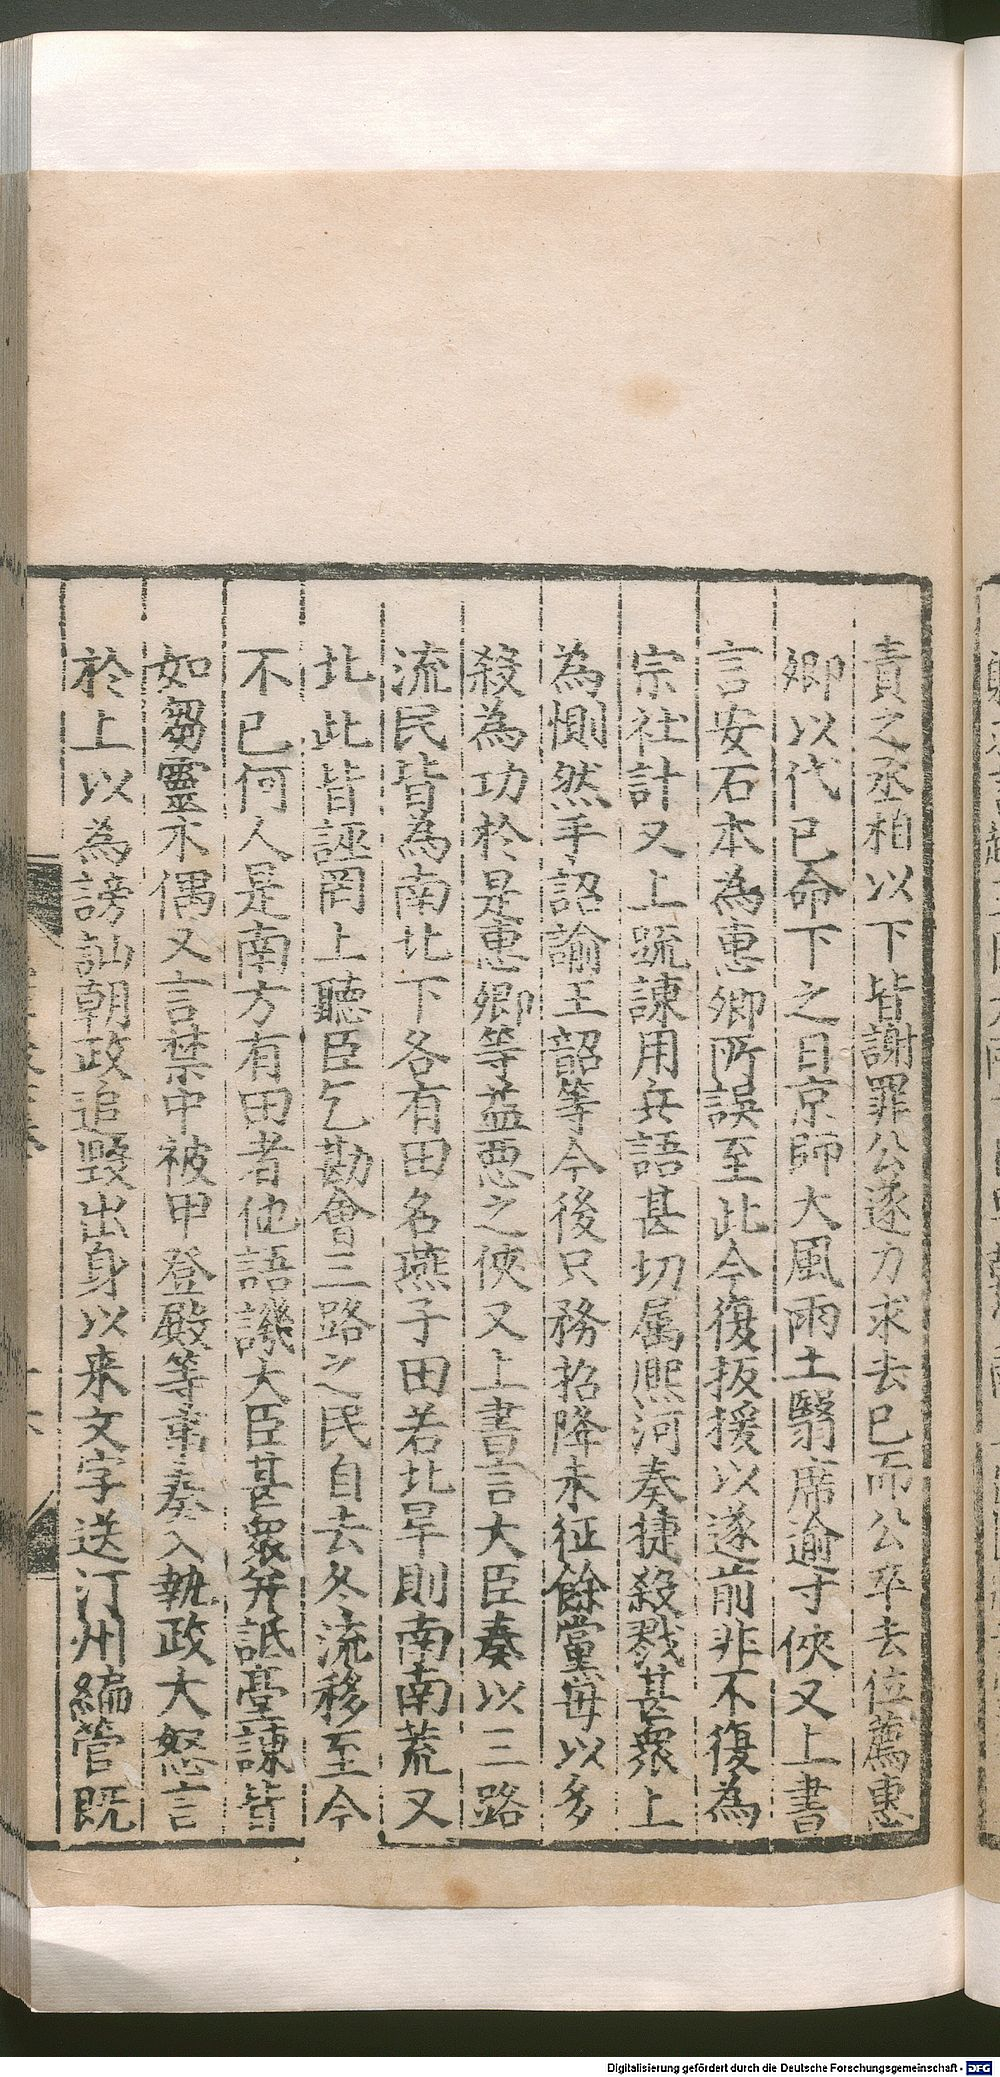 責之丞相以下皆謝罪公遂力求去已而公卒去位薦惠
卿以代已命下之日京師大風雨土翳席逾寸俠又上書
言安石本為惠卿所誤至此今復扳援以遂前非不復為
宗社計又上疏諫用兵語甚切属熈河奏捷殺戮甚衆上
為惻然手詔諭王韶等今後只務招降未征餘黨毋以多
殺為功於是惠卿等益惡之俠又上書言大臣奏以三路
流民皆為南北下各有田名燕子田若北旱則南南荒又
北此皆誣罔上聽臣乞勘會三路之民自去冬流移至今
不已何人是南方有田者他語譏大臣甚衆并詆臺諌皆
如芻靈木偶又言禁中被甲登殿等事奏入執政大怒言
於上以為謗訕朝政追毁出身以来文字送汀州編管既
Digitalisierung gefördert durch die Deutsche Forschungsgemeinschaft - DFG